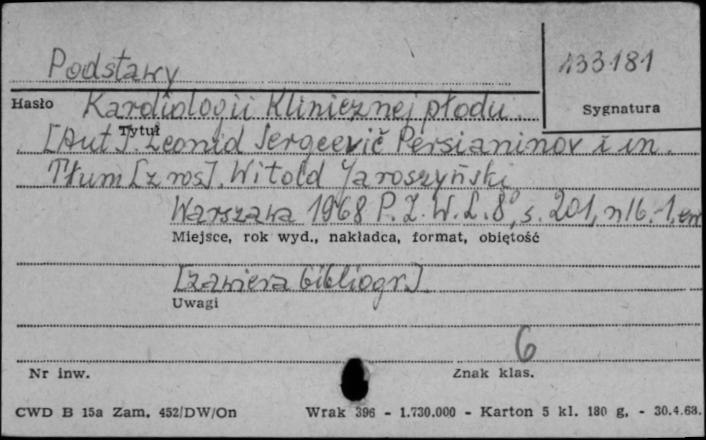 Podstawy
133181
Hasło Kardiologii Klinicznej płodu.
Sygnatura
Tytuł
[Aut]. Leonid Sergeevič Persianinov i in.
Tłum [z ros]. Witold Jaroszyński
Warszawa 1968 P.Z.W.L. 8°, s. 201,
Miejsce, rok wyd., nakładca, format, objętość
[zawiera bibliogr.]
Uwagi
6
Nr inw. Znak klas.
CWD B 15a Zam. 452/DW/On Wrak 396 - 1.730.000 - Karton 5 kl. 180 g. - 30.4.68.